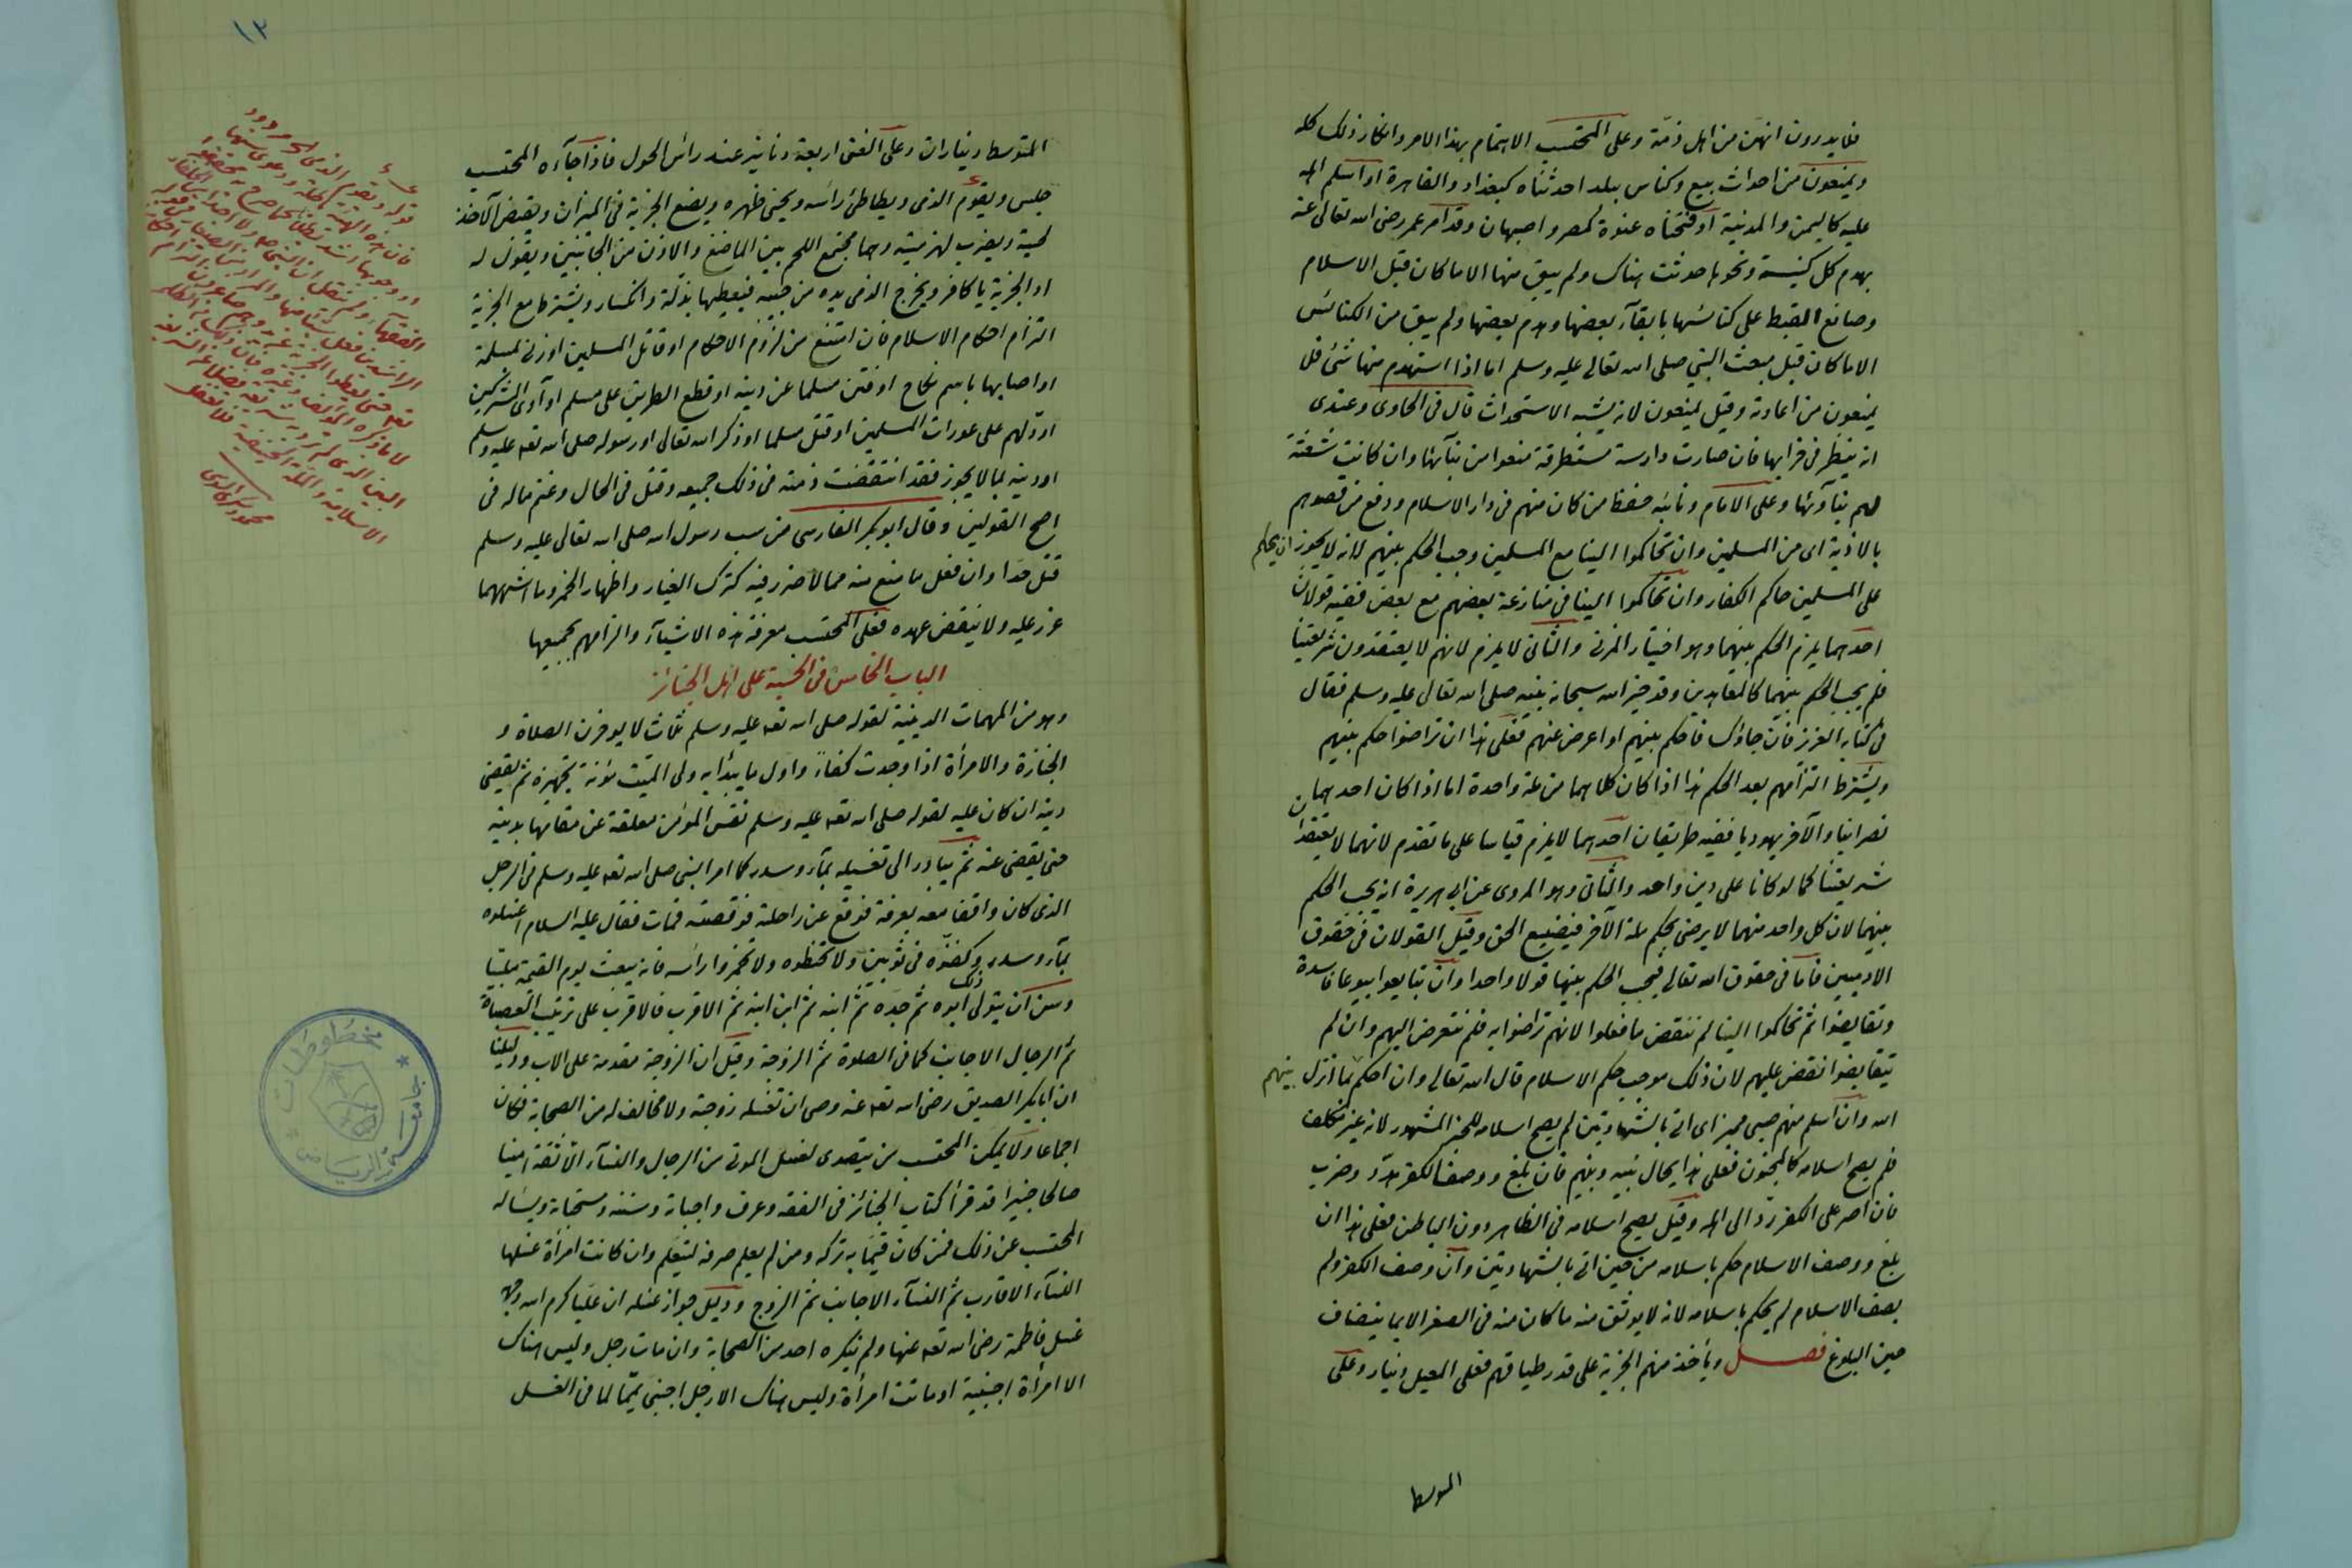 فلا يدرون انهن من اهل ذمة وعلى المحتسب الاهتمام بهذا الامر وانكار ذلك كله
ويمنعون من احداث بيع وكنائس ببلد احدثناه كبغداد والقاهرة او اسلم اهله
عليه كاليمن والمدينة او فتحناه عنوة كمصر واصبهان وقد امر عمر رضى الله تعالى عنه
بهدم كل كنيسة ونحوها حدثت هناك ولم يبق منها الا ما كان قبل الاسلام
وصانع القبط على كنائسها بابقآء بعضها وهدم بعضها ولم يبق من الكنائس
الا ما كان قبل مبعث النبي صلى الله تعالى عليه وسلم اما اذا استهدم منها شئ فلا
يمنعون من اعادته وقيل يمنعون لانه يشبه الاستحداث قال في الحاوى وعندى
انه ينظر في خرابها فان صارت دارسة مستطرقة منعوا من بنآئها وان كانت شعثة
لهم بنآؤها وعلى الامام ونائبه حفظ من كان منهم في دار الاسلام ودفع من قصدهم
بالاذية اى من المسلمين وان تحاكموا الينا مع المسلمين وجب الحكم بينهم لانه لا يجوز ان يحكم
على المسلمين حاكم الكفار وان تحاكموا الينا في منازعة بعضهم مع بعض ففيه قولان
احدهما يلزم الحكم بينهما وهو اختيار المزنى والثانى لا يلزم لانهم لا يعتقدون شريعتنا
فلم يجب الحكم بينهما كالمعاهدين وقد خير الله سبحانه نبيه صلى الله تعالى عليه وسلم فقال
في كتابه العزيز فان جاؤك فاحكم بينهم او اعرض عنهم فعلى هذا ان تراضوا حكم بينهم
ويشترط التزامهم بعد الحكم هذا اذا كان كلاهما من ملة واحدة اما اذا كان احدهما
نصرانيا والآخر يهوديا ففيه طريقان احدهما لا يلزم قياسا على ما تقدم لانهما لا يعتقدان
شريعتنا كما لو كانا على دين واحد والثانى وهو المروى عن ابى هريرة انه يجب الحكم
بينهما لان كل واحد منهما لا يرضى بحكم ملة الآخر فيضيع الحق وقيل القولان في حقوق
الادميين فاما في حقوق الله تعالى فيجب الحكم بينهما قولا واحدا وان تبايعوا بيوعا فاسدة
وتقابضوا ثم تحاكموا الينا لم ننقض ما فعلوا لانهم تراضوا به فلم نتعرض اليهم وان لم
يتقابضوا نقض عليهم لان ذلك موجب حكم الاسلام قال الله تعالى وان احكم بينهم بما انزل
الله وان اسلم منهم صبى مميز اى اتى بالشهادتين لم يصح اسلامه للخبر المشهور لانه غير مكلف
فلم يصح اسلامه كالمجنون فعلى هذا يحال بينه وبينهم فان بلغ ووصف الكفر هدد وضرب
فان اصر على الكفر رد الى اهله وقيل يصح اسلامه في الظاهر دون الباطن فعلى هذا ان
بلغ ووصف الاسلام حكم باسلامه من حين اتى بالشهادتين وان وصف الكفر ولم
يصف الاسلام لم يحكم باسلامه لانه لا يوثق منه ما كان منه في الصغر
حين البلوغ فصل ويأخذ منهم الجزية على قدر طبقاتهم فعلى المعيل دينار وعلى
المتوسط
١٢
المتوسط ديناران وعلى الغنى اربعة دنانير عند رأس الحول فاذا جآءه المحتسب
جلس ويقوم الذمى ويطأطئ رأسه ويحنى ظهره ويضع الجزية في الميزان ويقبض الآخذ
لحيته ويضرب لهزمتيه وهما مجتمع اللحم بين الماضغ والاذن من الجانبين ويقول له
اد الجزية يا كافر ويخرج الذمى يده من جيبه فيعطيها بذلة وانكسار ويشترط مع الجزية
التزام احكام الاسلام فان امتنع من لزوم الاحكام او قاتل المسلمين او زنى بمسلمة
او اصابها باسم نكاح او فتن مسلما عن دينه او قطع الطريق على مسلم او آوى المشركين
او دلهم على عورات المسلمين او قتل مسلما او ذكر الله تعالى او رسوله صلى الله تعه عليه وسلم
او دينه بما لا يجوز فقد انتقضت ذمته في ذلك جميعه وقتل في الحال وغنم ماله في
اصح القولين وقال ابو بكر الفارسى من سب رسول الله صلى الله تعالى عليه وسلم
قتل حدا وان فعل ما منع منه مما لا ضرر فيه كترك الغيار واظهار الخمر وما اشبههما
عزر عليه ولا ينقض عهده فعلى المحتسب معرفة هذه الاشيآء والزامهم بجميعها
الباب الخامس في الحسبة على اهل الجنائز
وهو من المهمات الدينية لقوله صلى الله تعه عليه وسلم ثلاث لا يؤخرن الصلاة و
الجنازة والامرأة اذا وجدت كفأ واول ما يبدأ به ولى الميت مؤنة تجهيزه ثم يقضى
دينه ان كان عليه لقوله صلى الله تعه عليه وسلم نفس المؤمن معلقة عن مقامها بدينه
حتى يقضى عنه ثم يبادر الى تغسيله بمآء وسدر كما امر النبى صلى الله تعه عليه وسلم في الرجل
الذى كان واقفا معه بعرفة فوقع عن راحلته فوقصته فمات فقال عليه السلام اغسلوه
بمآء وسدر وكفنوه في ثوبين ولا تحنطوه ولا تخمروا رأسه فانه يبعث يوم القيمة ملبيا
وسن ان يتولى ذلك ابوه ثم جده ثم ابنه ثم ابن ابنه ثم الاقرب فالاقرب على ترتيب العصبات
ثم الرجال الاجانب كما في الصلوة ثم الزوجة وقيل ان الزوجة مقدمة على الاب ودليلنا
ان ابابكر الصديق رضى الله تعه عنه وصى ان تغسله زوجته ولا مخالف له من الصحابة فكان
اجماعا ولا يمكن المحتسب من يتصدى لغسل الموتى من الرجال والنسآء الا ثقة امينا
صالحا خبيرا قد قرأ كتاب الجنائز في الفقه وعرف واجباته وسننه ومستحباته ويسأله
المحتسب عن ذلك فمن كان قيما به تركه ومن لم يعلم صرفه ليتعلم وان كانت امرأة غسلها
النسآء الاقارب ثم النسآء الاجانب ثم الزوج ودليل جواز غسله ان عليا كرم الله وجهه
غسل فاطمة رضى الله تعه عنها ولم ينكره احد من الصحابة وان مات رجل وليس هناك
الا امرأة اجنبية او ماتت امرأة وليس هناك الا رجل اجنبى يمما لما في الغسل
مخطوطات
جامعة الرياض